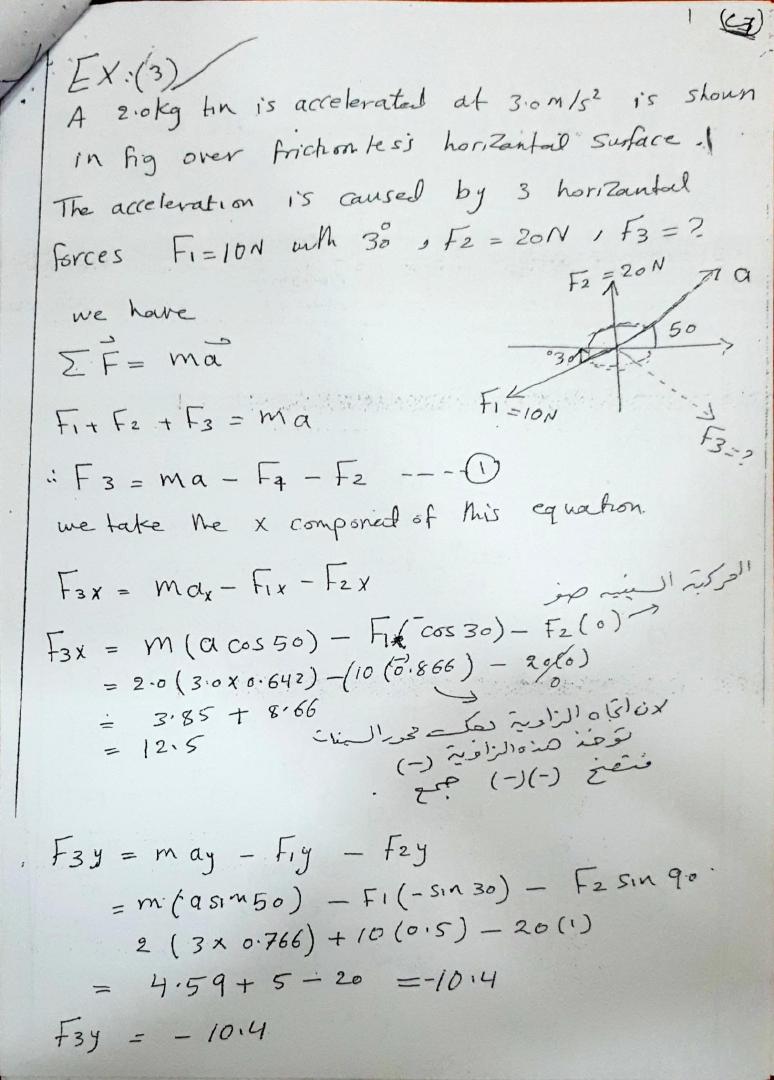 EX:(3)
A 2.0kg tin is accelerated at 3.0m/s² is shown
in fig over frictionless horizantail surface.
The acceleration is caused by 3 horizantal
forces F1=10N with 30°, F2 = 20N, F3 = ?
F2 = 20N
a
50
°30
F1=10N
F3=?
we have
Σ F⃗ = ma⃗
F1 + F2 + F3 = ma
∴ F3 = ma - F1 - F2 ----①
we take the x componed of this equation.
F3x = max - F1x - F2x
المركبة السينيه صفر
F3x = m(a cos50) - F1(-cos30) - F2(0)
= 2.0(3.0x0.642)-(10(-0.866) - 20(0)
0
= 3.85 + 8.66
= 12.5
لان اتجاه الزاوية عكس محور السينات
توخذ هذه الزاوية (-)
فتصبح (-)(-) جمع.
F3y = may - F1y - F2y
= m(a sin50) - F1(-sin30) - F2 sin90.
2(3x0.766) + 10(0.5) - 20(1)
= 4.59 + 5 - 20 = -10.4
F3y = -10.4